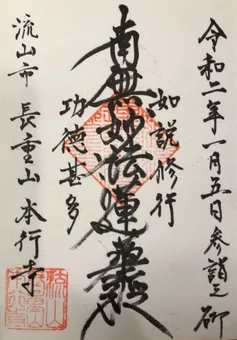 令和二年一月五日参詣之砌
如説修行
南無妙法蓮華経
功徳甚多
流山市 長重山本行寺